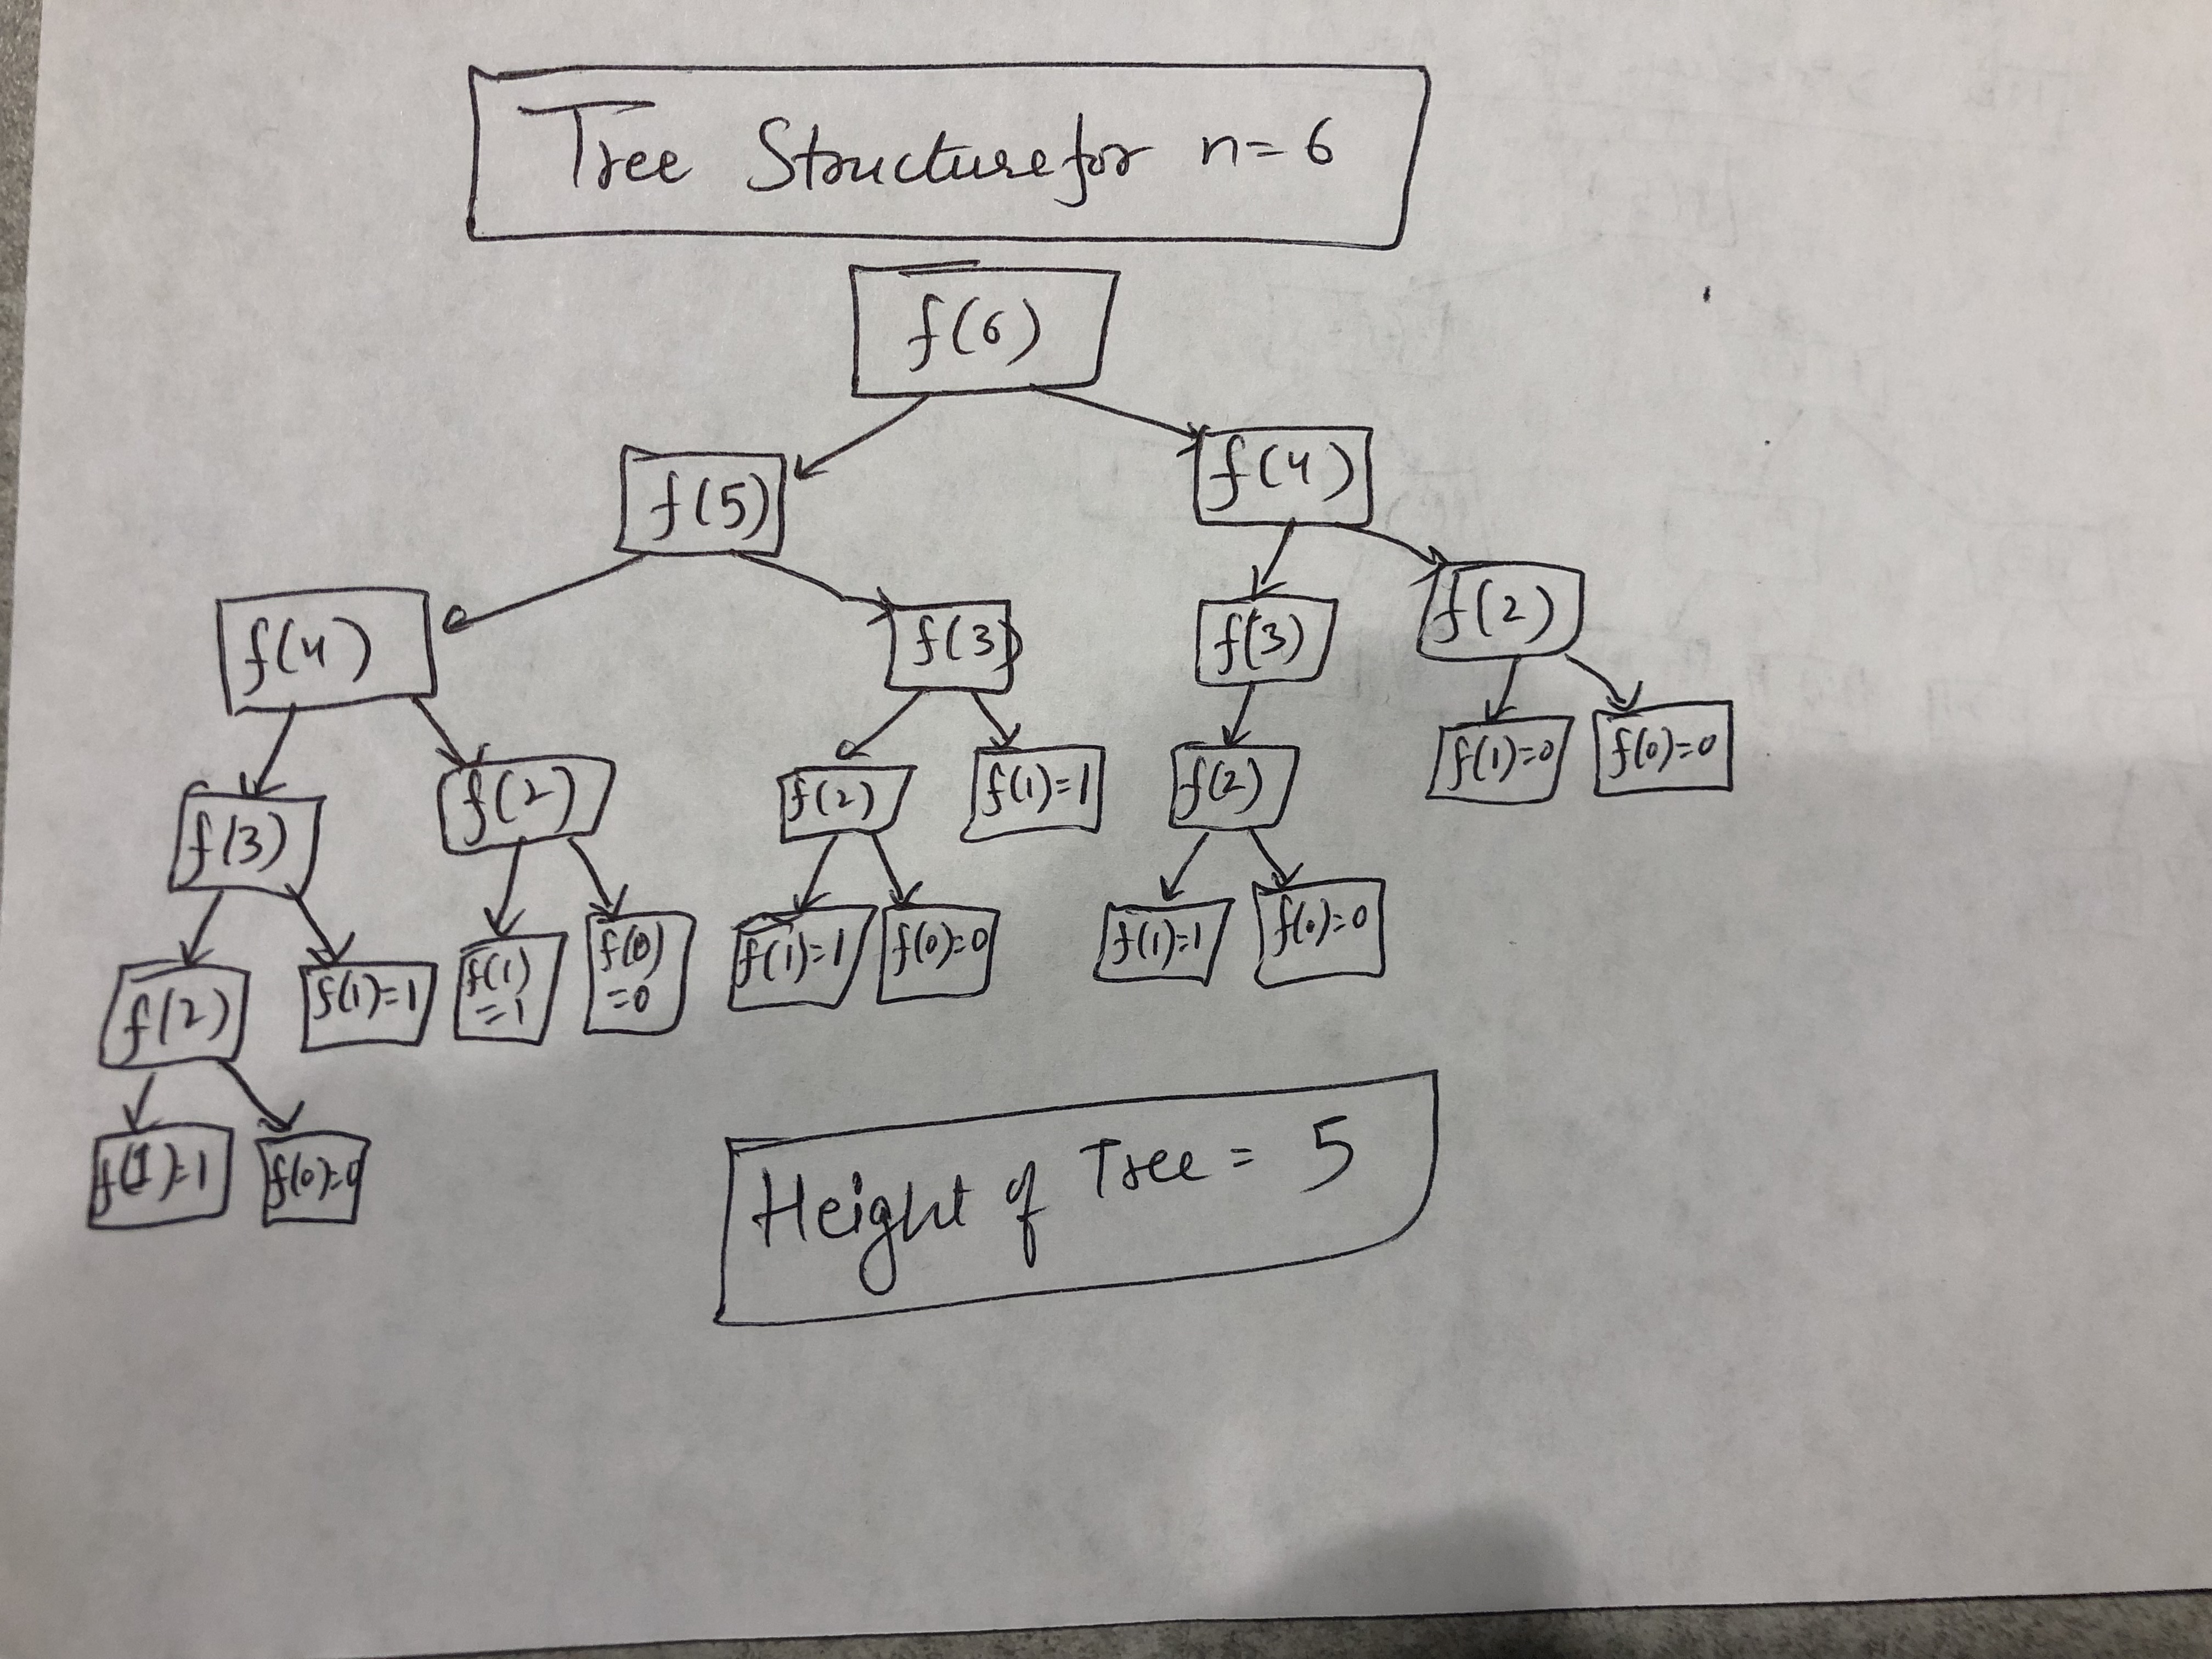 Tree Structure for n=6
f(6)
f(5) f(4)
f(4) f(3) f(3) f(2)
f(3) f(2) f(2) f(1)=1 f(2) f(1)=0 f(0)=0
f(2) f(1)=1 f(1)
=1 f(0)
=0 f(1)=1 f(0)=0 f(1)=1 f(0)=0
f(1)=1 f(0)=0
Height of Tree = 5